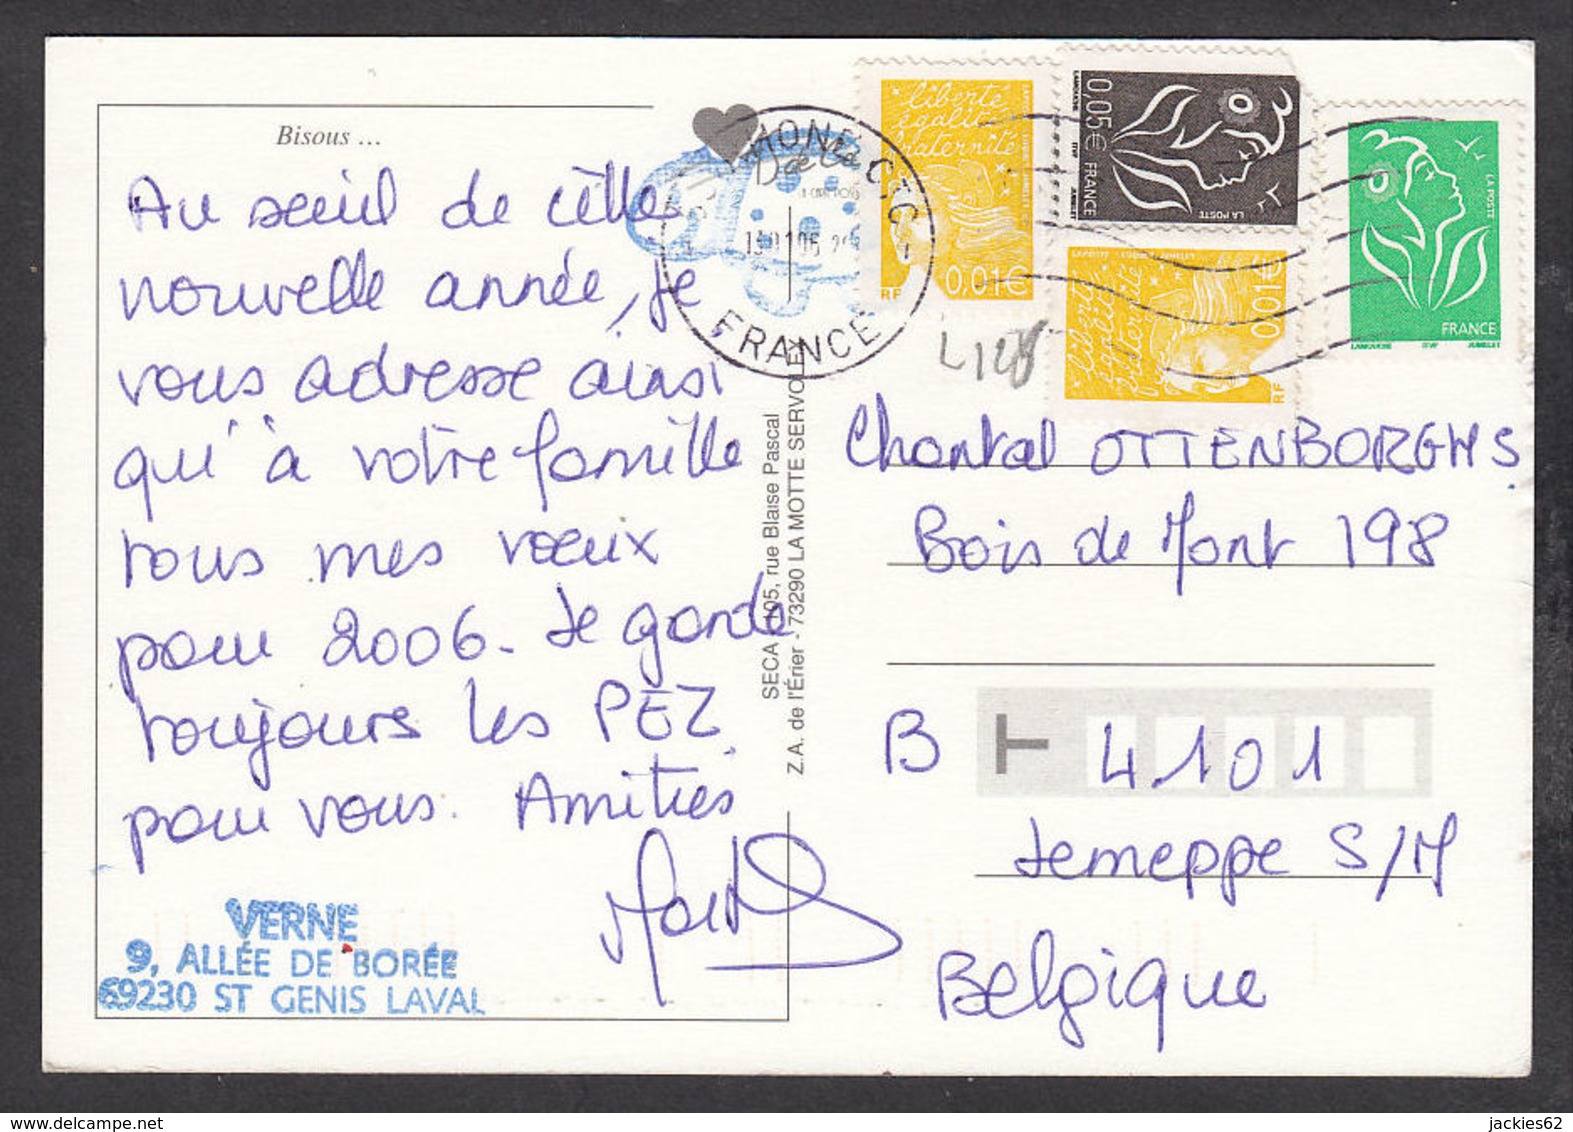 Bisous ...
Au seuil de cette
nouvelle année, je
vous adresse ainsi
qu'à votre famille
tous mes vœux
pour 2006. Je garde
toujours les PEZ
pour vous. Amitiés
VERNE
9, ALLÉE DE BORÉE
69230 ST GENIS LAVAL
SECA - 105, rue Blaise Pascal
Z.A. de l'Érier - 73290 LA MOTTE SERVOLEX
FRANCE
liberté
égalité
fraternité
RF
0.01€
0,05€ FRANCE
LAMOUCHE
ITVF
JUMELET
LA POSTE
liberté
égalité
fraternité
0.01€
RF
LA POSTE
FRANCE
LAMOUCHE ITVF JUMELET
L128
Chantal OTTENBORGHS
Bois de Mont 198
B 4101
Jemeppe S/M
Belgique
jackies62